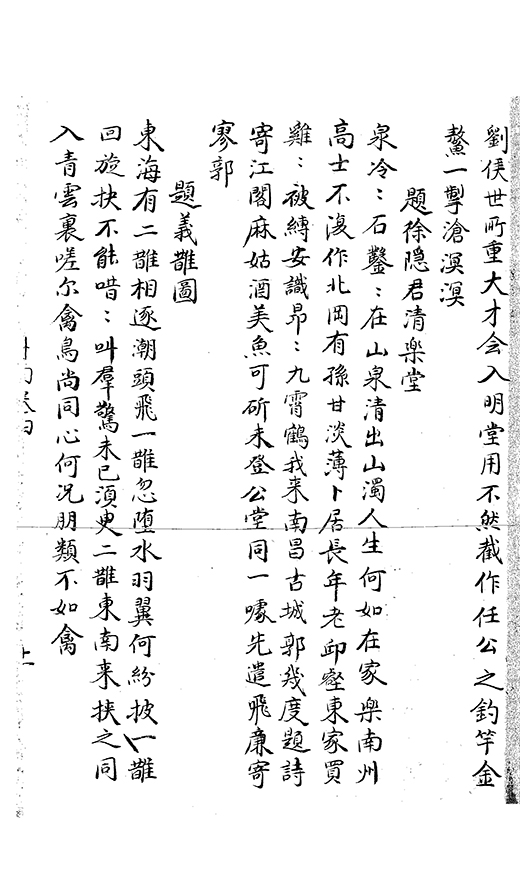 劉侯世所重大才会入明堂用不然截作任公之釣竿金
鰲一掣滄溟溟
題徐隐君清樂堂
泉冷:石鑿:在山泉清出山濁人生何如在家樂南州
高士不復作北岡有孫甘淡薄卜居長年老邱壑東家買
雞:被縛安識昂:九霄鶴我来南昌古城郭幾度題詩
寄江閣麻姑酒美魚可斫未登公堂同一噱先遣飛廉寄
寥郭
題義鵲圖
東海有二鵲相逐潮頭飛一鵲忽墮水羽翼何紛披一鵲
回旋扶不能唶:叫羣驚未已須臾二鵲東南来挾之同
入青雲裏嗟尔禽鳥尚同心何况朋類不如禽
上